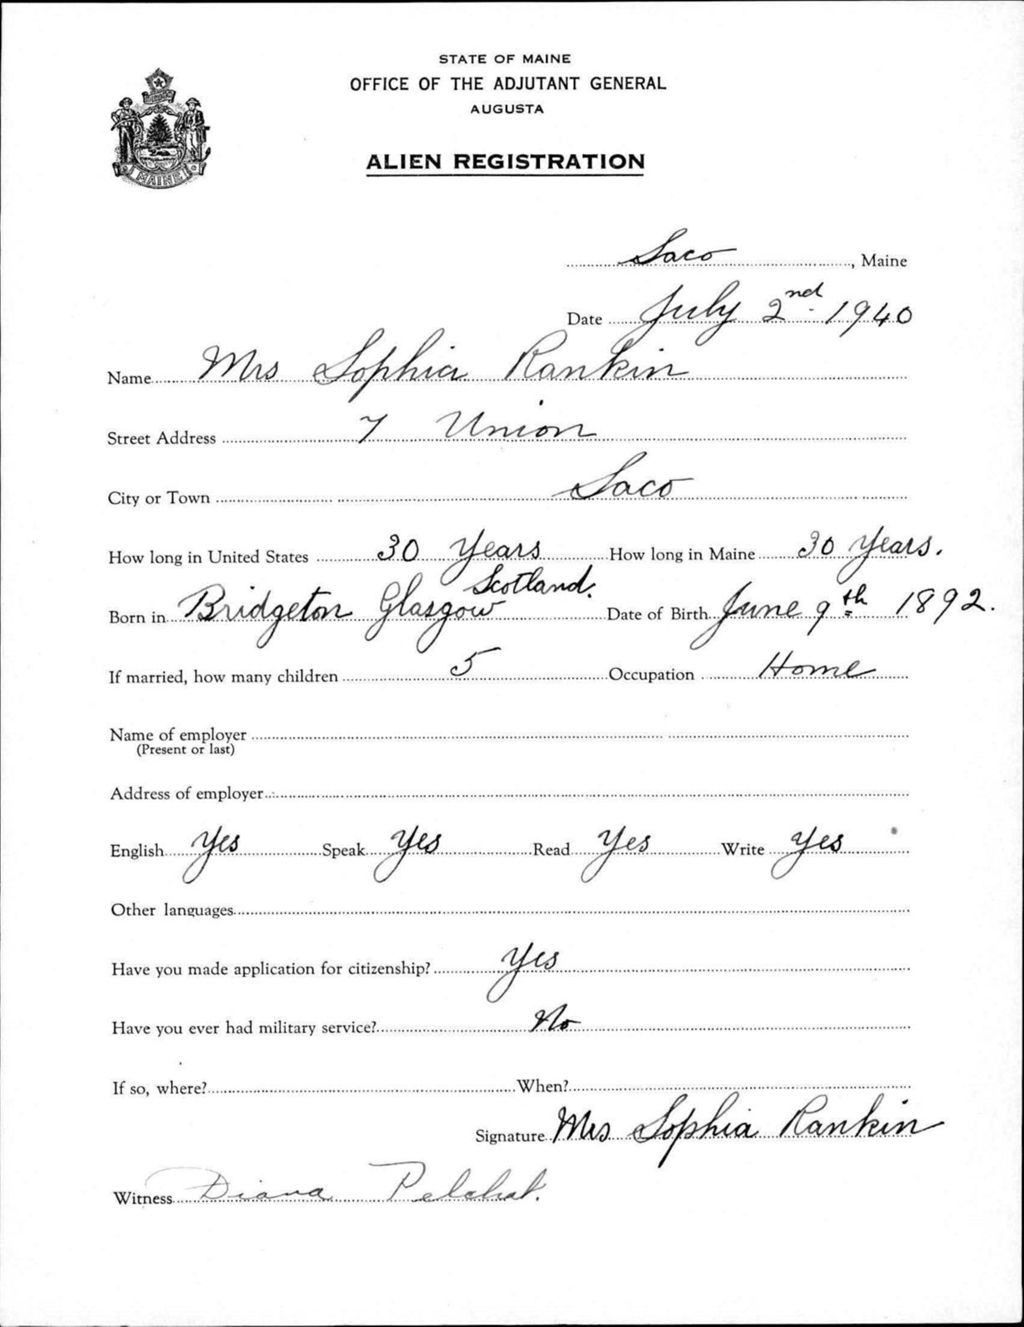 STATE OF MAINE
OFFICE OF THE ADJUTANT GENERAL
AUGUSTA
ALIEN REGISTRATION
MAINE
Saco, Maine
Date July 2nd 1940
Name Mrs Sophia Rankin
Street Address 7 Union
City or Town Saco
How long in United States 30 Years How long in Maine 30 Years.
Scotland.
Born in Bridgeton Glasgow Date of Birth June 9th 1892.
If married, how many children 5 Occupation Home
Name of employer
(Present or last)
Address of employer
English Yes Speak Yes Read Yes Write Yes
Other languages
Have you made application for citizenship? Yes
Have you ever had military service? No
If so, where? When?
Signature Mrs Sophia Rankin
Witness Diana Pelchat.